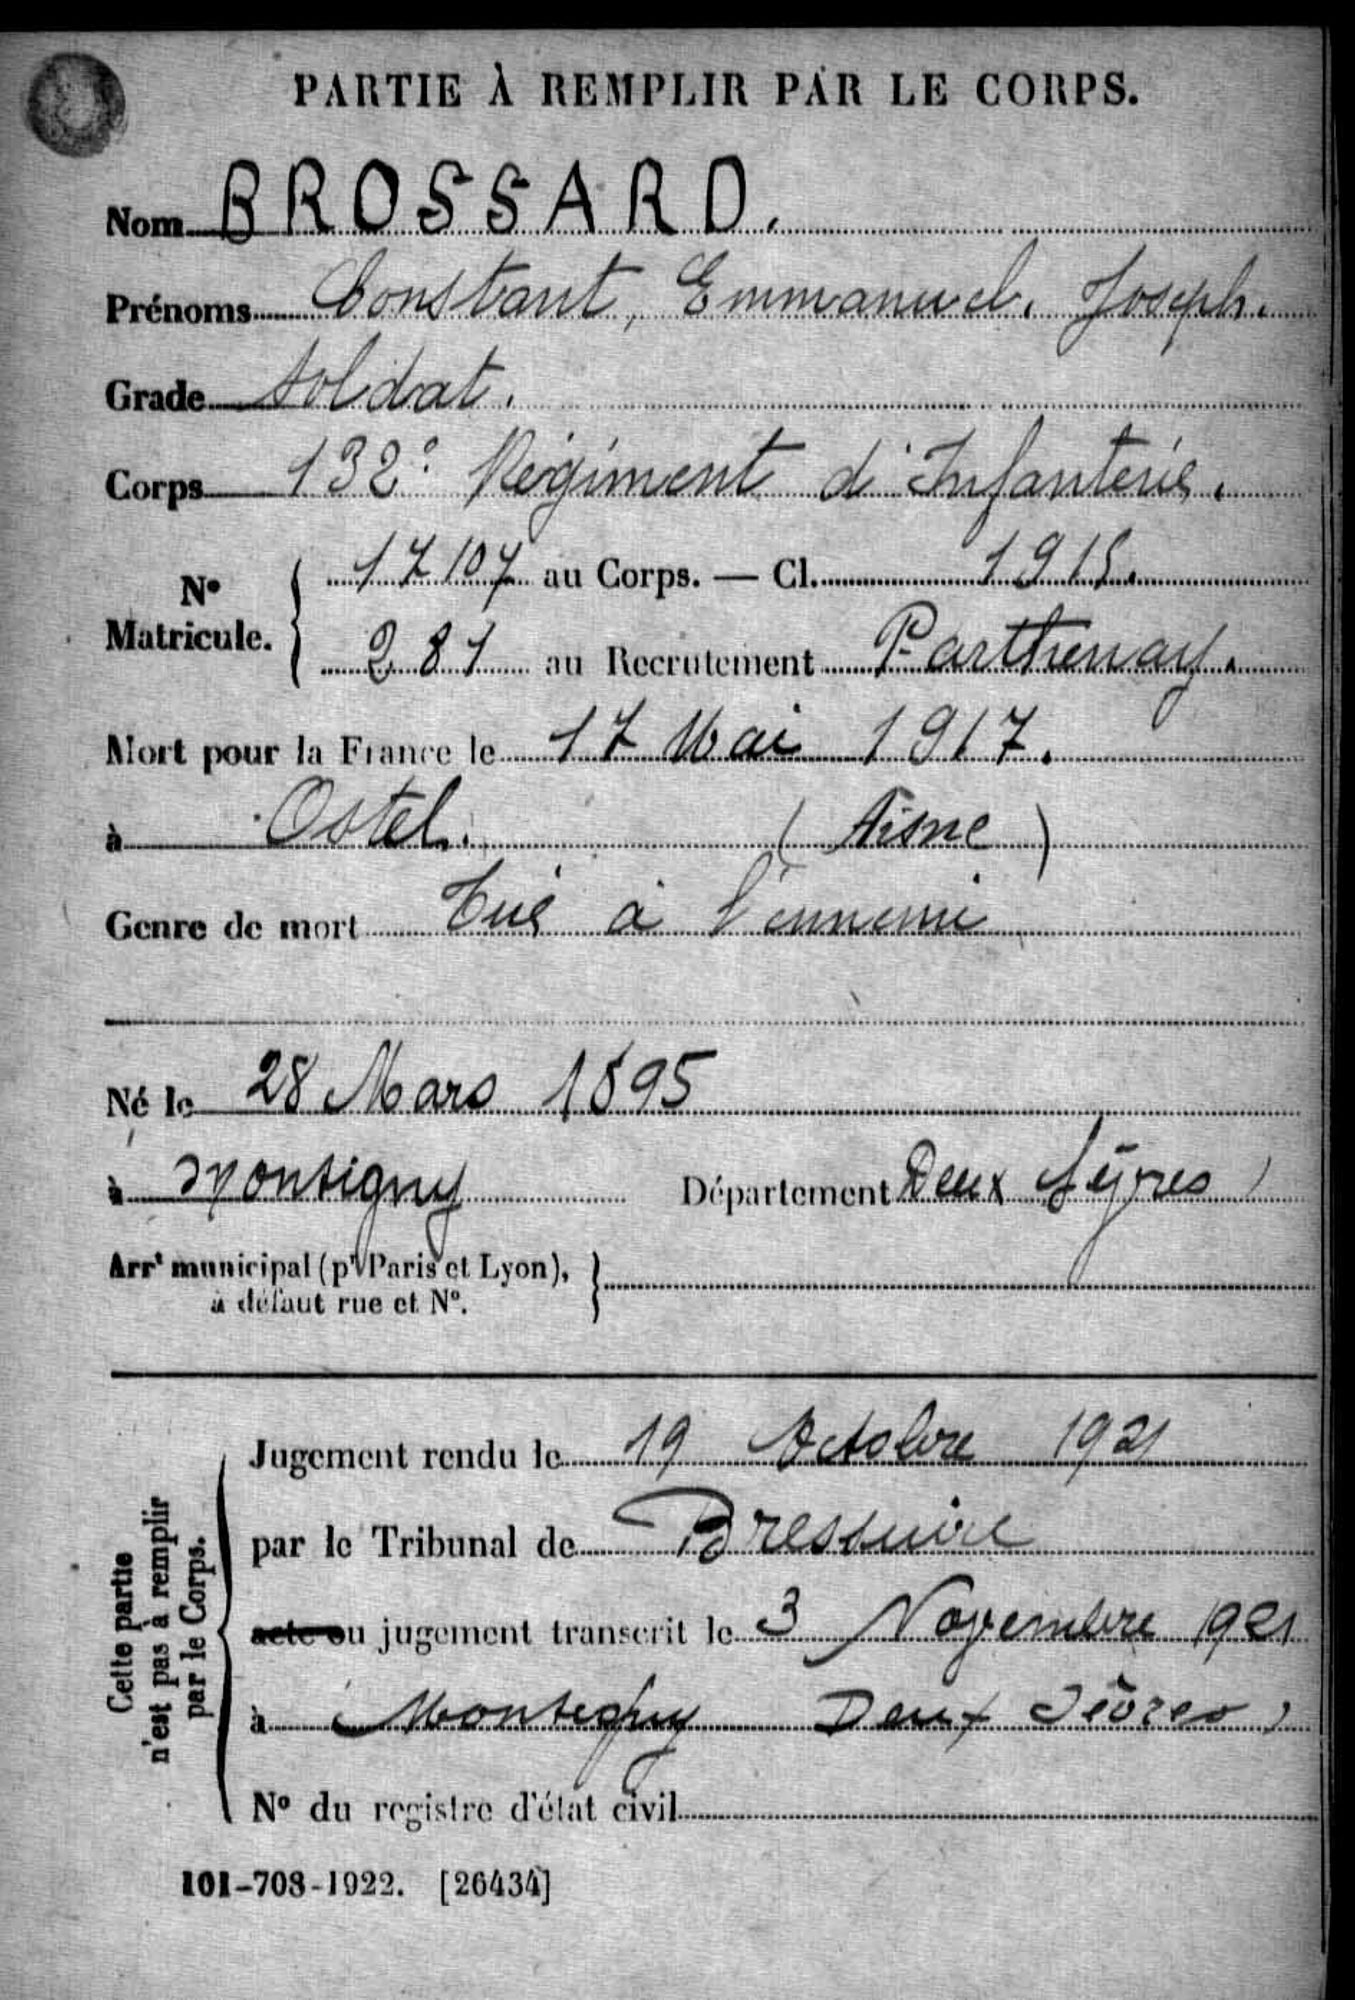 PARTIE À REMPLIR PAR LE CORPS.
Nom BROSSARD.
Prénoms Constant, Emmanuel. Joseph.
Grade Soldat.
Corps 132e Régiment d'Infanterie.
No Matricule. { 17107 au Corps. — Cl. 1915.
281 au Recrutement Parthenay.
Mort pour la France le 17 Mai 1917.
à Ostel. (Aisne)
Genre de mort Tué à l'ennemi
Né le 28 Mars 1895
à Montigny Département Deux Sèvres
Arrt municipal (pr Paris et Lyon), à défaut rue et No. }
Cette partie n'est pas à remplir par le Corps.
Jugement rendu le 19 Octobre 1921
par le Tribunal de Bressuire
acte ou jugement transcrit le 3 Novembre 1921
à Montigny Deux Sèvres
No du registre d'état civil
101-708-1922. [26434]